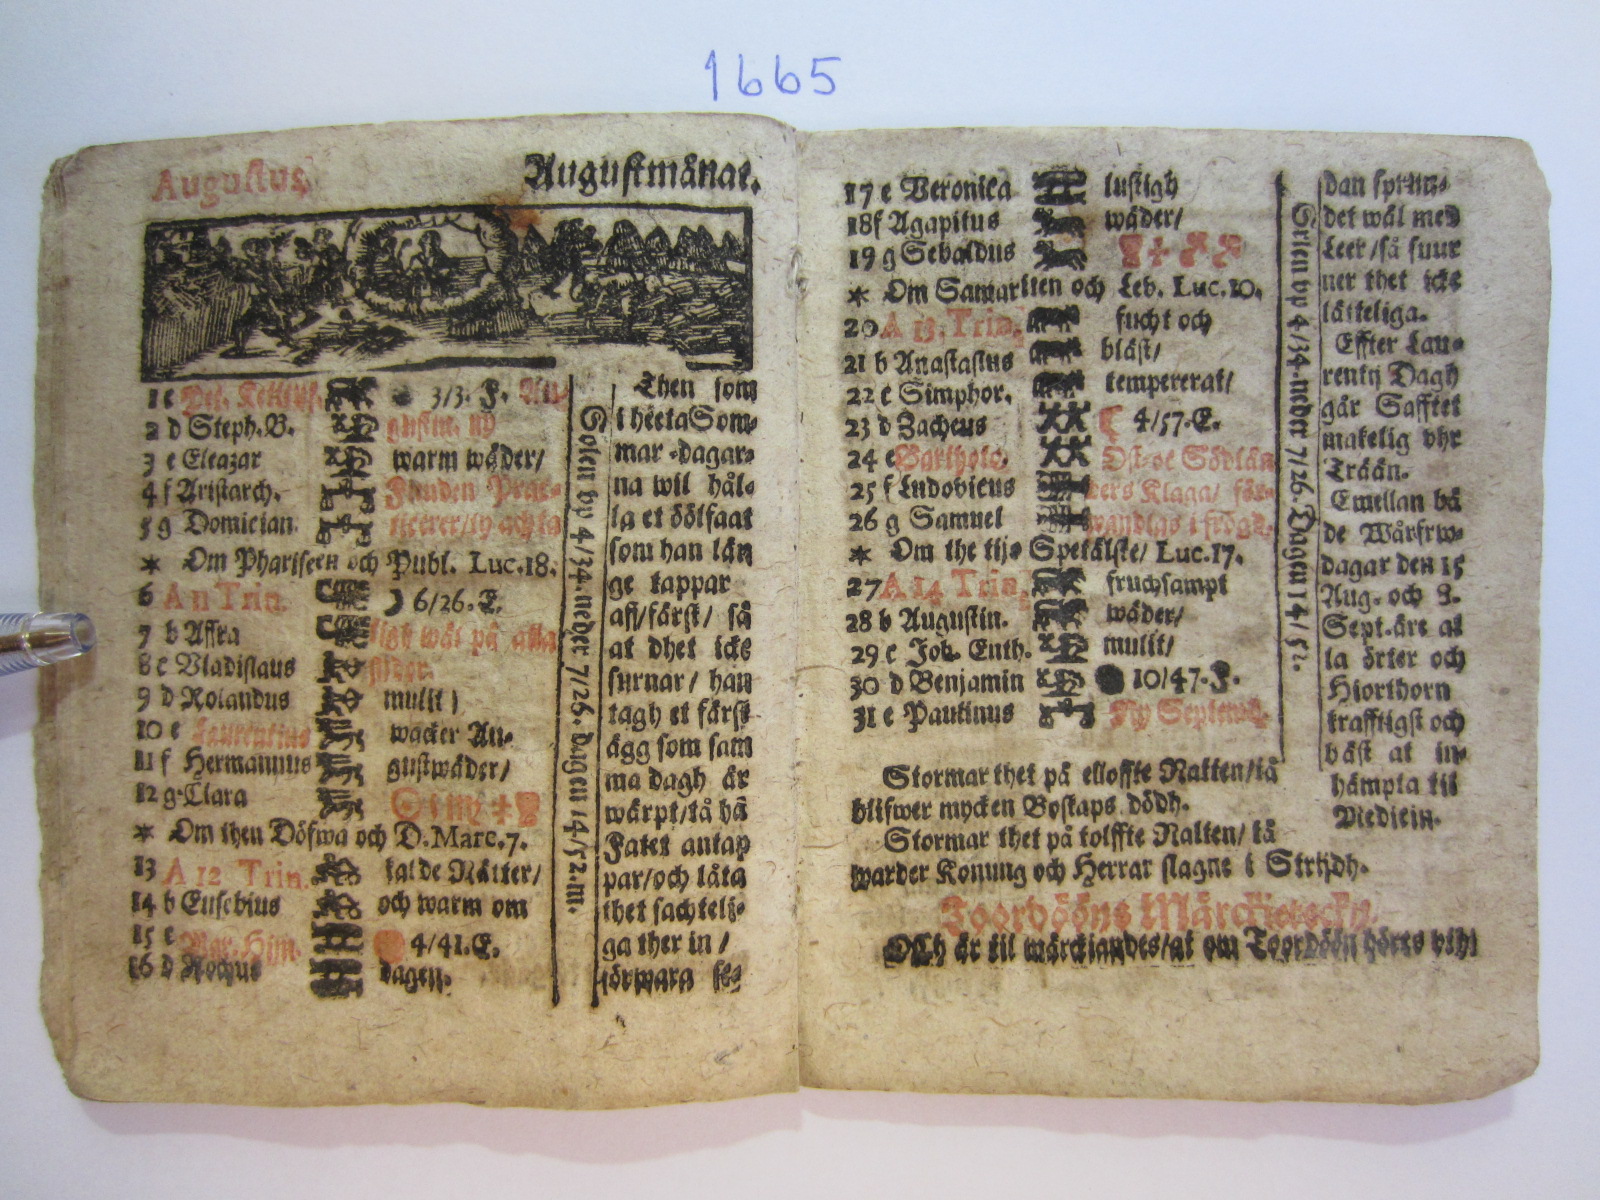 1665
Augustus
Augustmånat.
1 c Pet. Ketters. 3/3. F. Au-
2 d Steph.B. gustm. ny
3 e Eleazar warm wäder/
4 f Aristarch.
5 g Domician.
* Om Phariseen och Publ. Luc.18.
6 A 11 Trin. 6/26.E.
7 b Affra ligh wäl på alla
8 c Vladislaus sijdor.
9 d Rolandus mulit/
10 e Laurentius wacker Au-
11 f Hermannus gustwäder/
12 g Clara
* Om then Döfwa och D.Marc.7.
13 A 12 Trin. kalde Nätter/
14 b Eusebius och warm om
15 c Mar. Him. 4/41.E.
16 d Rochus dagen.
Solen up 4/34. neder 7/26. Dagen 14/52.m.
Then som
i heeta Som-
mar-dagar-
na wil hål-
la et öölfaat
som han län
ge tappar
aff/färst/ så
at dhet icke
surnar/ han
tagh et färst
ägg som sam
ma dagh är
wärpt/tå hå
Fatet antap
par/och låta
thet sachteli-
ga ther in/
förwara se-
17 e Veronica lustigh
18 f Agapitus wäder/
19 g Sebaldus
* Om Samariten och Lev. Luc.10.
20 A 13. Trin. fucht och
21 b Anastasius bläst/
22 c Simphor. tempererat/
23 d Zacheus 4/57.E.
24 e Barthole. Öst-oe Södlän
25 f Ludovicus ders Klaga/ för-
26 g Samuel wandlas i frögd.
* Om the tije Spetälske/ Luc.17.
27 A 14 Trin. fruchsampt
28 b Augustin. wäder/
29 c Joh. Enth. mulit/
30 d Benjamin 10/47.F.
31 e Paulinus Ny Septemb.
Solen up 4/34. neder 7/26. Dagen 14/52.
dan sprun-
det wäl med
Leer/så suur
ner thet icke
lätteliga.
Effter Lau-
rentij Dagh
går Safftet
makelig vhr
Trään.
Emellan bå
de Wårfrw-
dagar den 15
Aug. och 8.
Sept. äre al
la örter och
Hiorthorn
krafftigst och
bäst at in-
hämpta til
Medicin.
Stormar thet på elloffte Natten/tå
blifwer mycken Boskaps dödh.
Stormar thet på tolffte Natten/ tå
warder Konung och Herrar slagne i Strijdh.
Toordööns Märcketeckn.
OCh är til märckiandes/at om Toordöön höres vthi